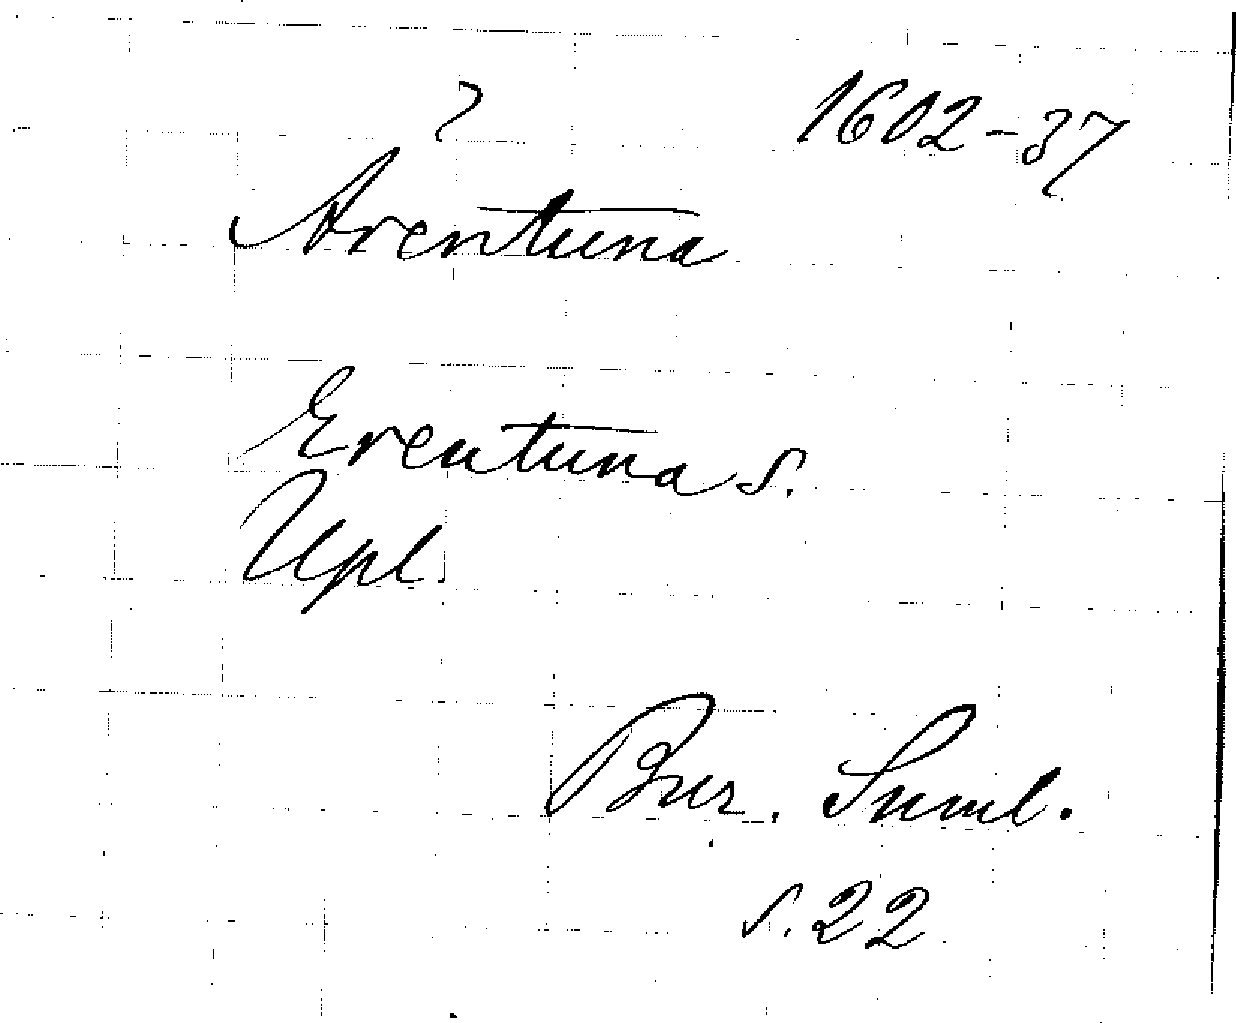 ? 1602-37
Arentuna
Erentuna s.
Upl.
Bur. Suml.
s. 22